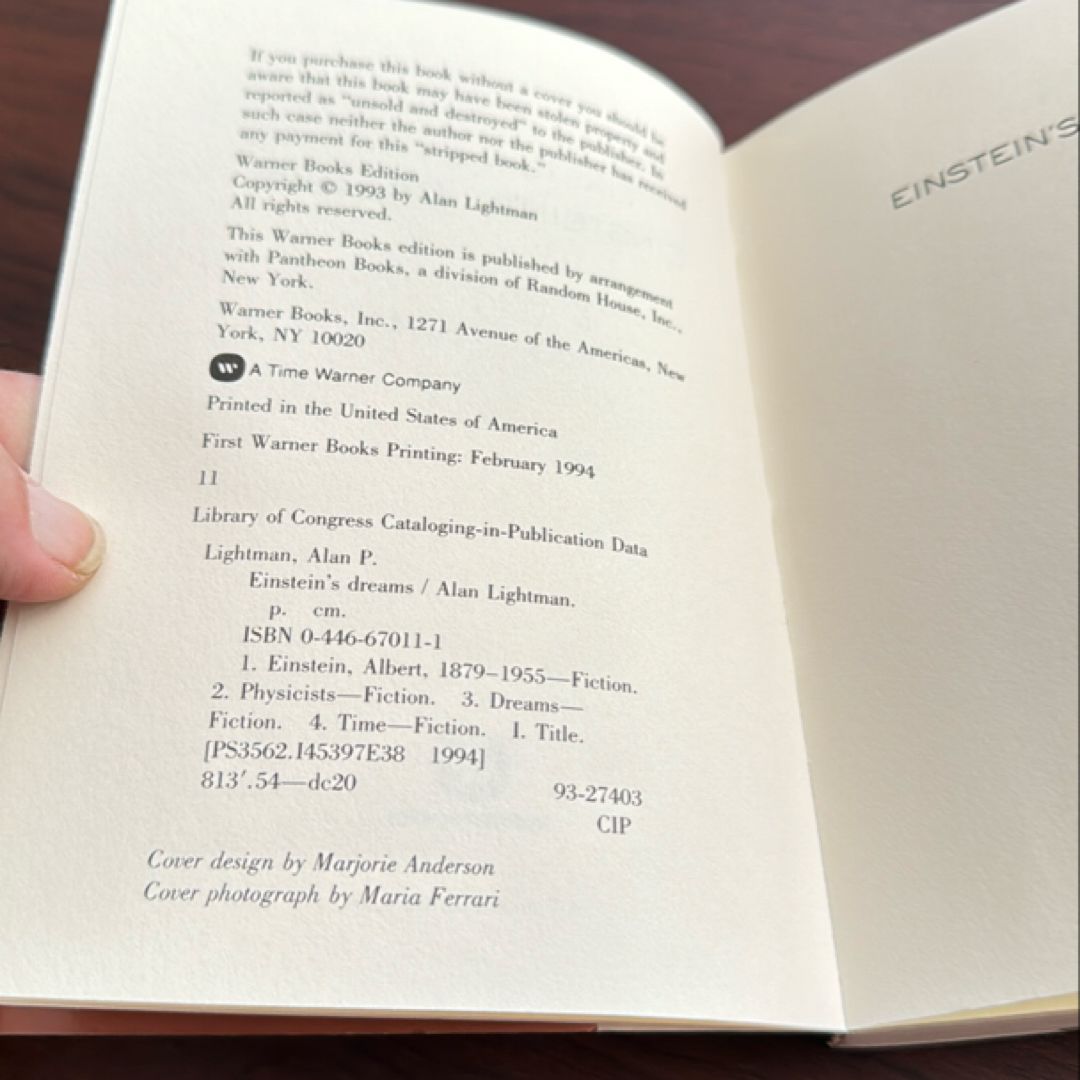 If you purchase this book without a cover you should be
aware that this book may have been stolen property and
reported as "unsold and destroyed" to the publisher. In
such case neither the author nor the publisher has received
any payment for this "stripped book."
Warner Books Edition
Copyright © 1993 by Alan Lightman
All rights reserved.
This Warner Books edition is published by arrangement
with Pantheon Books, a division of Random House, Inc.,
New York.
Warner Books, Inc., 1271 Avenue of the Americas, New
York, NY 10020
W A Time Warner Company
Printed in the United States of America
First Warner Books Printing: February 1994
11
Library of Congress Cataloging-in-Publication Data
Lightman, Alan P.
Einstein's dreams / Alan Lightman.
p. cm.
ISBN 0-446-67011-1
1. Einstein, Albert, 1879–1955—Fiction.
2. Physicists—Fiction. 3. Dreams—
Fiction. 4. Time—Fiction. I. Title.
[PS3562.I45397E38 1994]
813'.54—dc20 93-27403
CIP
Cover design by Marjorie Anderson
Cover photograph by Maria Ferrari
EINSTEIN'S